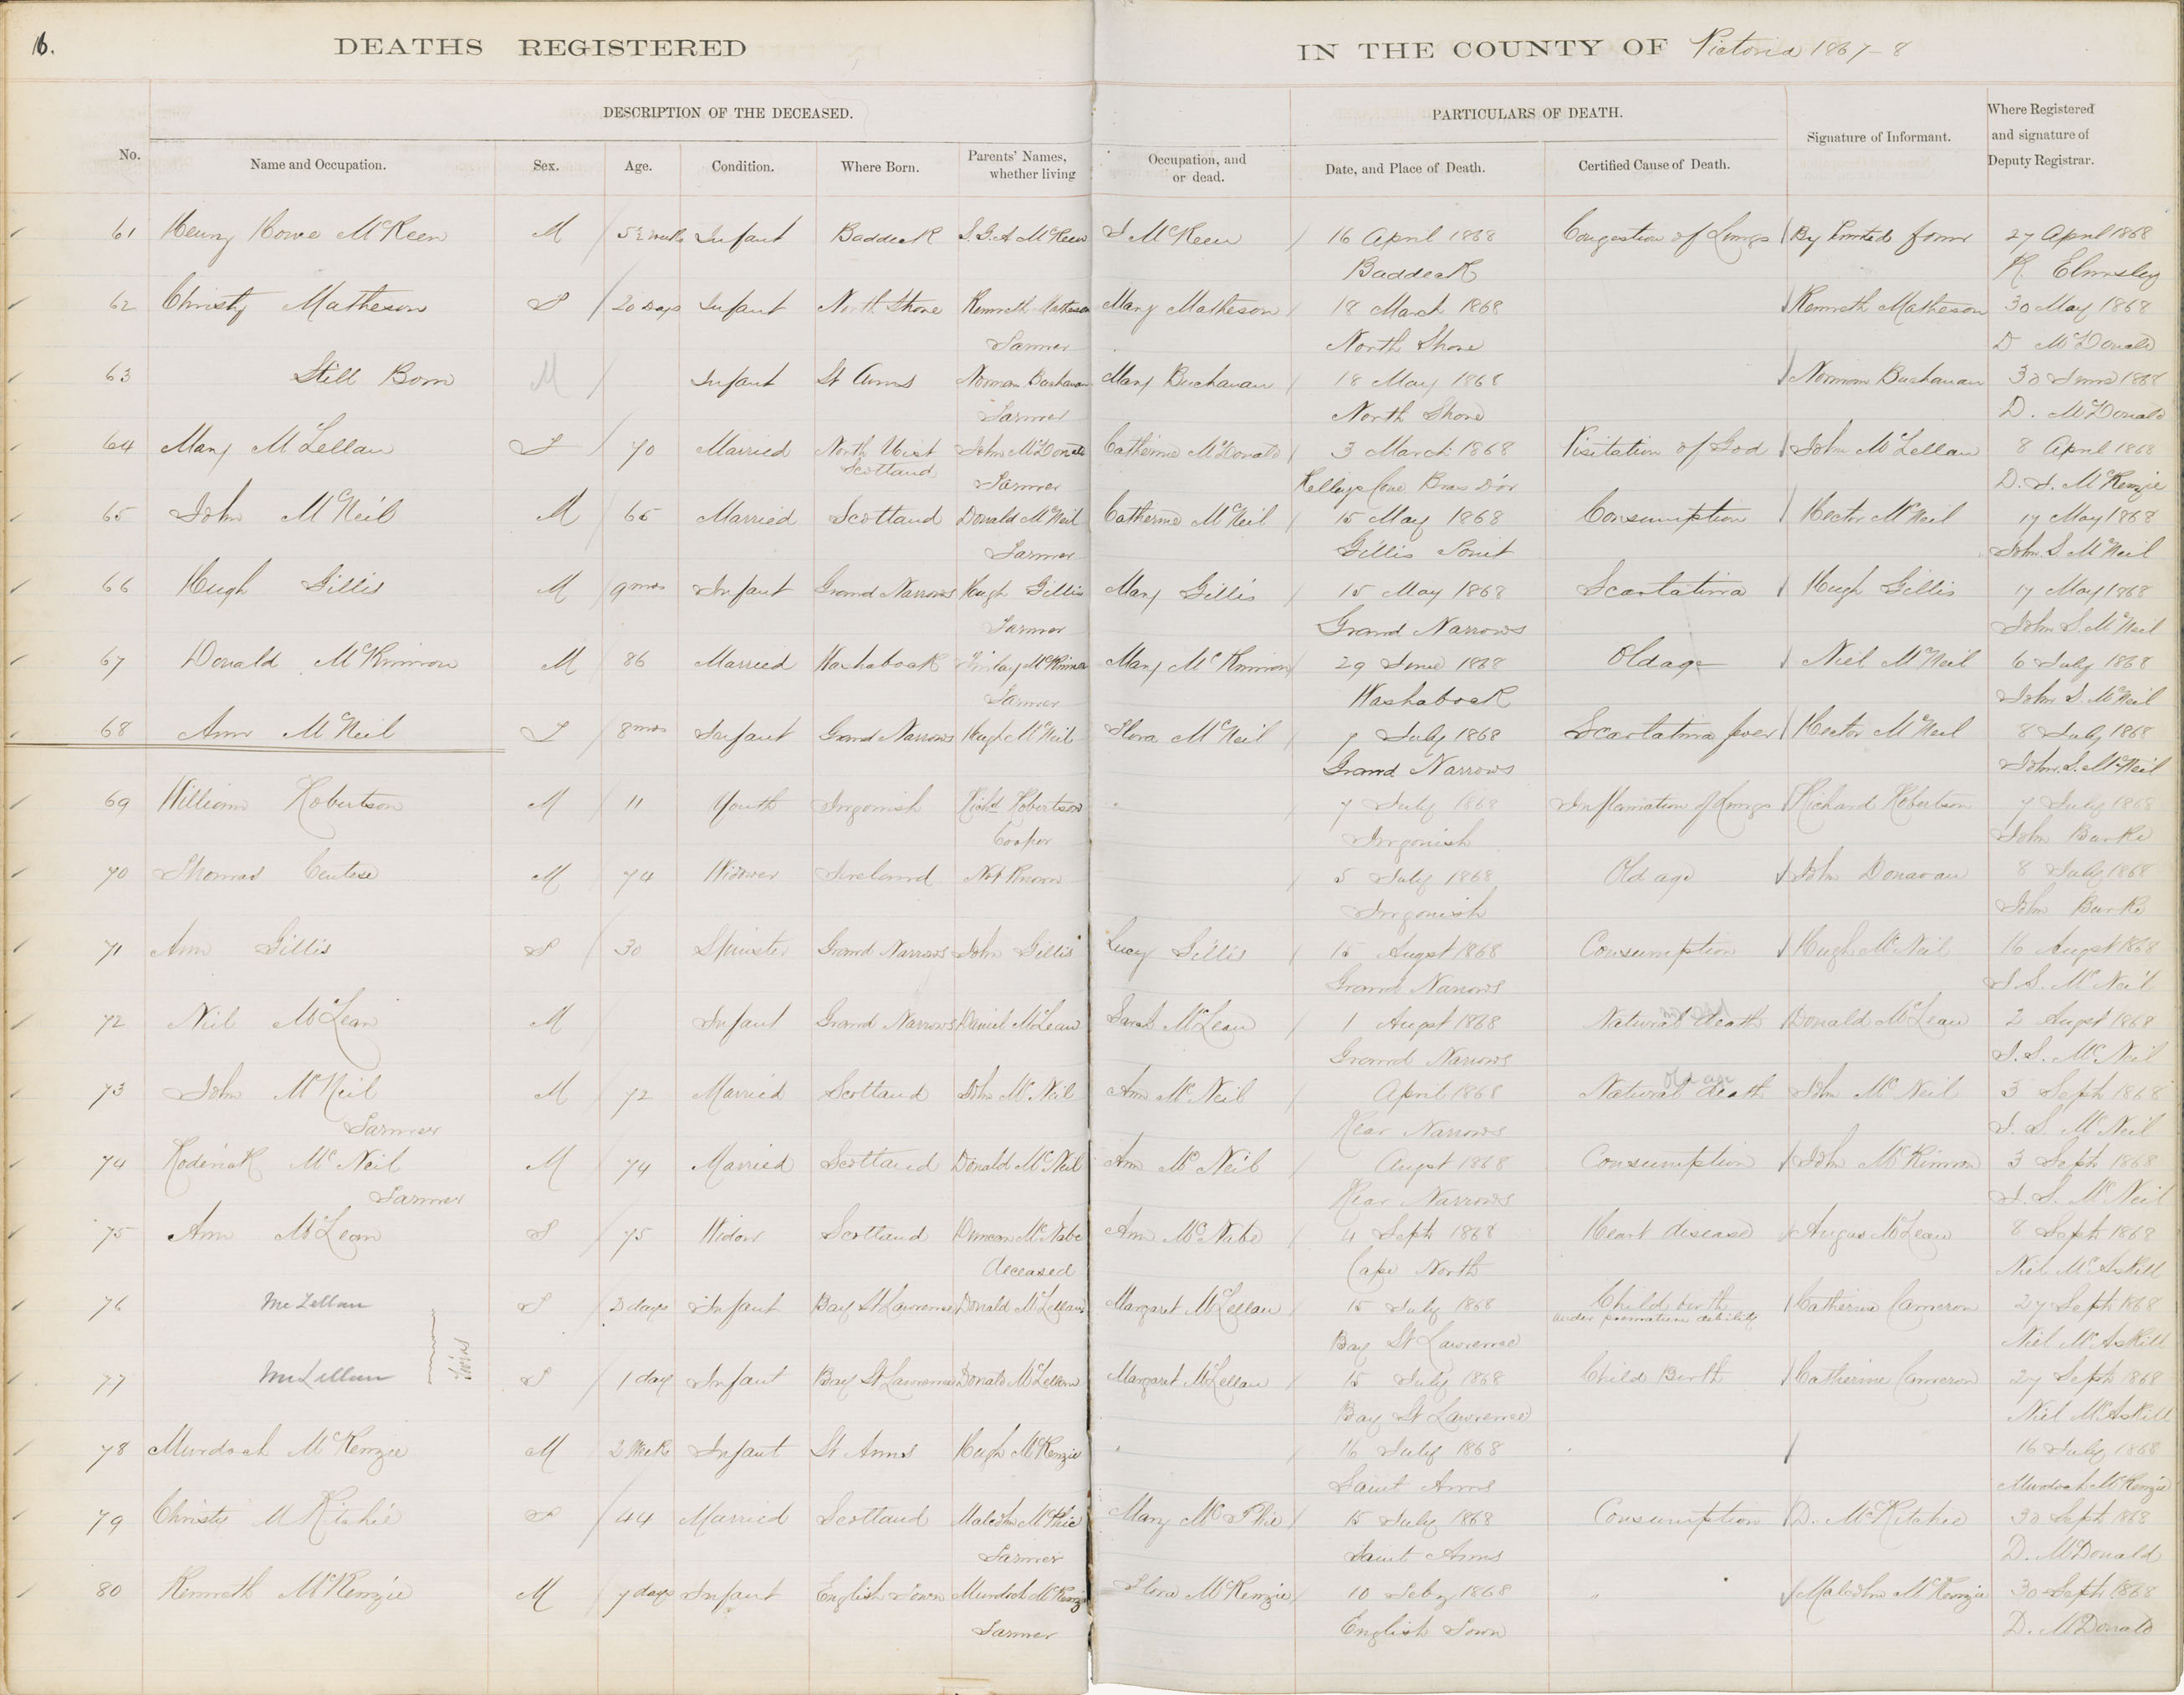 16.
DEATHS REGISTERED IN THE COUNTY OF Victoria 1867-8
DESCRIPTION OF THE DECEASED. PARTICULARS OF DEATH.
No. Name and Occupation. Sex. Age. Condition. Where Born. Parents' Names, whether living Occupation, and or dead. Date, and Place of Death. Certified Cause of Death. Signature of Informant. Where Registered and signature of Deputy Registrar.
61 Henry Howe McKeen M 5½ weeks Infant Baddeck S.G.A McKeen S McKeen 16 April 1868 Congestion of Lungs By Printed form 27 April 1868
Baddeck R Elmsley
62 Christy Matheson F 20 Days Infant North Shore Kenneth Matheson Mary Matheson 18 March 1868 Kenneth Matheson 30 May 1868
Farmer North Shore D McDonald
63 Still Born M Infant St Anns Norman Buchanan Mary Buchanan 18 May 1868 Norman Buchanan 30 June 1868
Farmer North Shore D. McDonald
64 Mary McLellan F 70 Married North Uist John McDonald Catherine McDonald 3 March 1868 Visitation of God John McLellan 8 April 1868
Scotland Farmer Kellys Cove Bras D'or D. F. McKenzie
65 John McNeil M 65 Married Scotland Donald McNeil Catherine McNeil 15 May 1868 Consumption Hector McNeil 17 May 1868
Farmer Gillis Point John S McNeil
66 Hugh Gillis M 9 mos Infant Grand Narrows Hugh Gillis Mary Gillis 15 May 1868 Scarlatina Hugh Gillis 17 May 1868
Farmer Grand Narrows John S. McNeil
67 Donald McKinnon M 86 Married Washaback Finlay McKinnon Mary McKinnon 29 June 1868 Old age Niel McNeil 6 July 1868
Farmer Washaback John S McNeil
68 Ann McNeil F 8 mos Infant Grand Narrows Hugh McNeil Flora McNeil 7 July 1868 Scarlatina fever Hector McNeil 8 July 1868
Grand Narrows John S. McNeil
69 William Robertson M 11 Youth Ingonish Richd Robertson 7 July 1868 Inflamation of Lungs Richard Robertson 7 July 1868
Cooper Ingonish John Burke
70 Thomas M 74 Widower Ireland Not Known 5 July 1868 Old age John Donavan 8 July 1868
Ingonish John Burke
71 Ann Gillis F 30 Spinster Grand Narrows John Gillis Lucy Gillis 15 Augst 1868 Consumption Hugh McNeil 16 Augst 1868
Grand Narrows J. S. McNeil
72 Niel McLean M Infant Grand Narrows Daniel McLean Sarah McLean 1 Augst 1868 Natural death Donald McLean 2 Augst 1868
Grand Narrows J. S. McNeil
old age
73 John McNeil M 72 Married Scotland John McNeil Ann McNeil April 1868 Natural death John McNeil 3 Septr 1868
Farmer Rear Narrows J. S. McNeil
74 Roderick McNeil M 74 Married Scotland Donald McNeil Ann McNeil Augst 1868 Consumption John McKinnon 3 Septr 1868
Farmer Rear Narrows J. S. McNeil
75 Ann McLean F 75 Widow Scotland Duncan McNabe Ann McNabe 4 Septr 1868 Heart disease Angus McLean 8 Septr 1868
deceased Cape North Niel McAskill
76 McLellan F 2 days Infant Bay St Lawrence Donald McLellan Margaret McLellan 15 July 1868 Child birth Catherine Cameron 27 Septr 1868
under premature debility
Bay St Lawrence Niel McAskill
Twins
77 McLellan F 1 day Infant Bay St Lawrence Donald McLellan Margaret McLellan 15 July 1868 Child Birth Catherine Cameron 27 Septr 1868
Bay St Lawrence Niel McAskill
78 Murdoch McKenzie M 2 Weeks Infant St Anns Hugh McKenzie 16 July 1868 16 July 1868
Saint Anns Murdoch McKenzie
79 Christy McRitchie F 44 Married Scotland Malcolm McPhie Mary McPhie 15 July 1868 Consumption D. McRitchie 30 Septr 1868
Farmer Saint Anns D. McDonald
80 Kenneth McKenzie M 7 days Infant English Town Murdoch McKenzie Flora McKenzie 10 Feby 1868 Malcolm McKenzie 30 Septr 1868
Farmer English Town D. McDonald